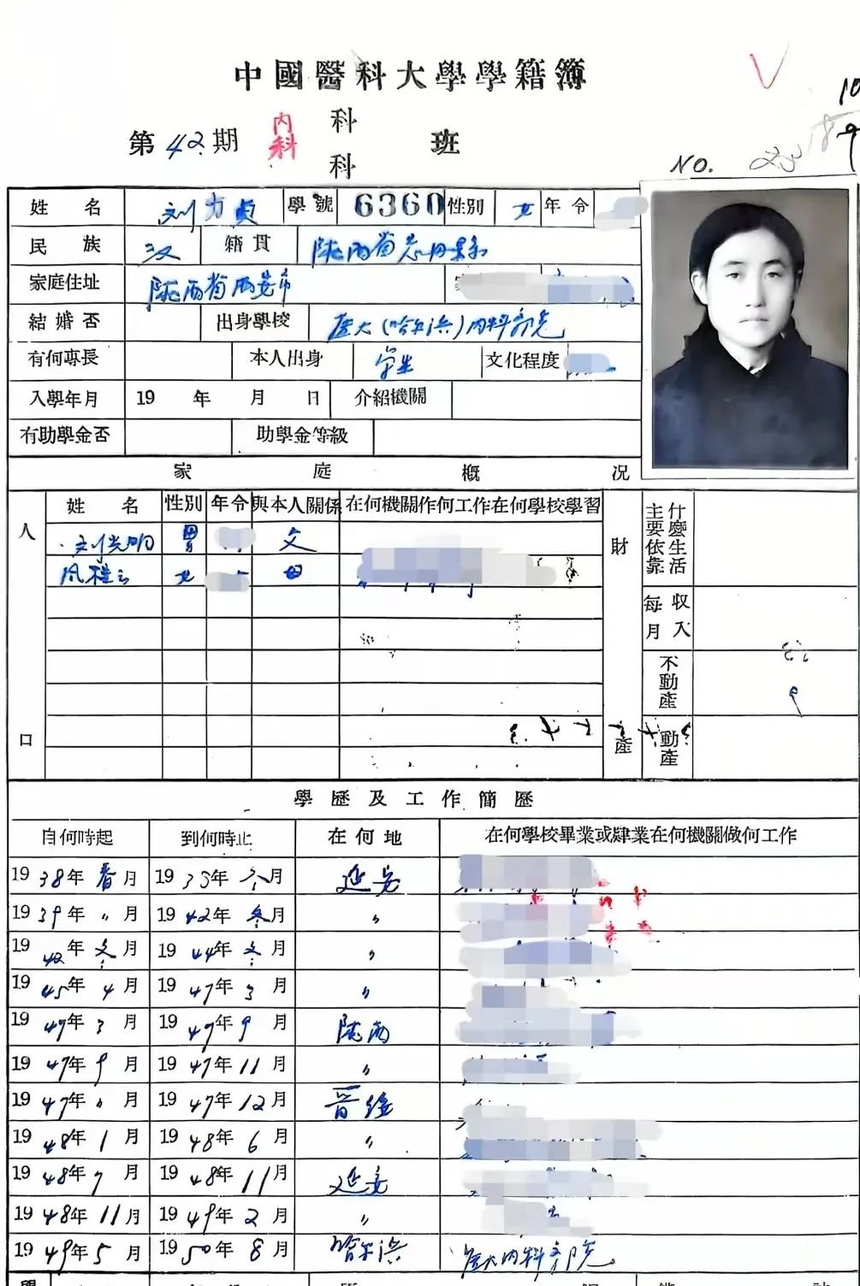 中國醫科大學學籍簿
第42期 內科 科 科 班
NO.
姓名 刘力贞 學號 6360 性別 女 年令
民族 汉 籍貫 陕西省志丹县
家庭住址 陕西省西安市
結婚否 出身學校 医大(哈尔滨)内科
有何專長 本人出身 学生 文化程度
入學年月 19 年 月 日 介紹機關
有助學金否 助學金等級
家庭概况
人口
姓名 性別 年令 與本人關係 在何機關作何工作在何學校學習
刘景明 男 父
女 母
財產
什麼生活主要依靠
每月收入
不動產
動產
學歷及工作簡歷
自何時起 到何時止 在何地 在何學校畢業或肄業在何機關做何工作
1938年春月 19年月 延安
1939年〃月 1942年冬月 〃
1942年冬月 1944年冬月 〃
1945年4月 1947年3月 〃
1947年3月 1947年9月 陕西
1947年9月 1947年11月 〃
1947年〃月 1947年12月 晋绥
1948年1月 1948年6月 〃
1948年7月 1948年11月 延安
1948年11月 1949年2月 〃
1949年5月 1950年8月 哈尔滨 医大内科